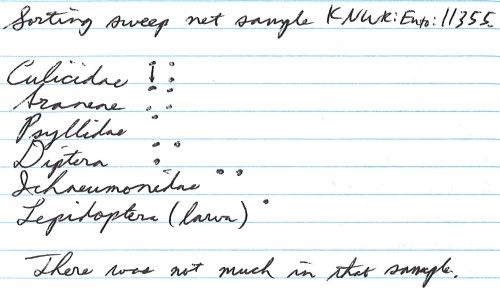 Sorting sweep net sample KNWR:Ento:11355.
Culicidae
Araneae
Psyllidae
Diptera
Ichneumonidae
Lepidoptera (larva)
There was not much in that sample.